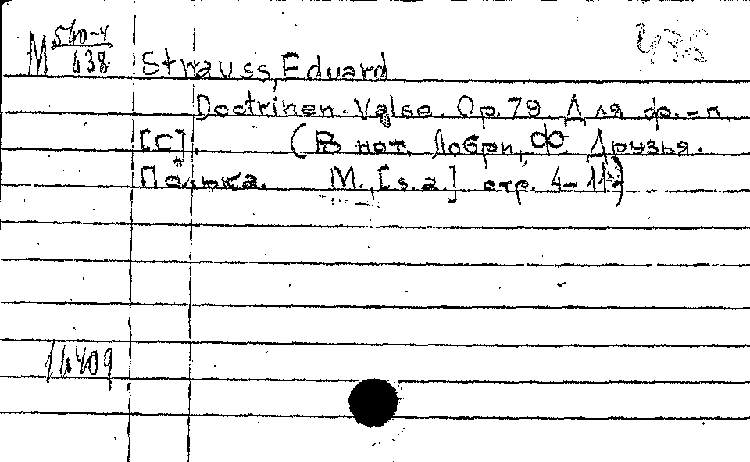 М 540-4/638
Strauss, Eduard
Doctrinen. Valse. Op. 79. Для ф.-п
[C]. (В нот. Лобри, Ф. Друзья.
Полька. М., [s.a.] стр. 4-11)
16409